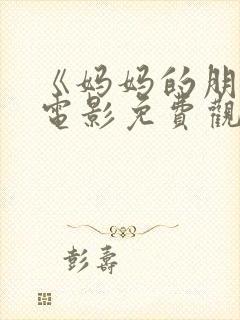 《妈妈的朋
電影免費觀
彭壽